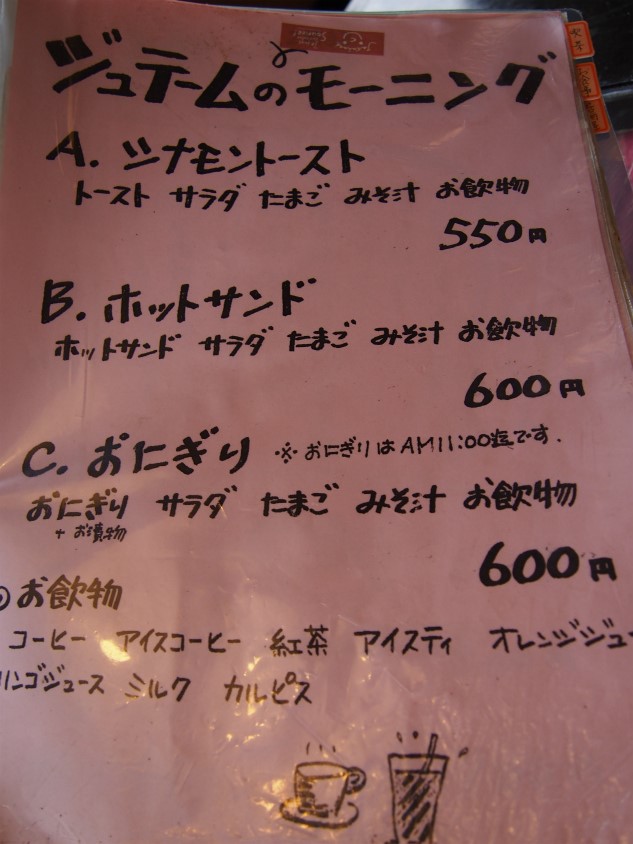 ジュテームのモーニング
A. シナモントースト
トースト サラダ たまご みそ汁 お飲物
550円
B. ホットサンド
ホットサンド サラダ たまご みそ汁 お飲物
600円
C. おにぎり ※おにぎりはAM11:00迄です.
おにぎり サラダ たまご みそ汁 お飲物
+ お漬物
600円
お飲物
コーヒー アイスコーヒー 紅茶 アイスティ オレンジジュー
リンゴジュース ミルク カルピス